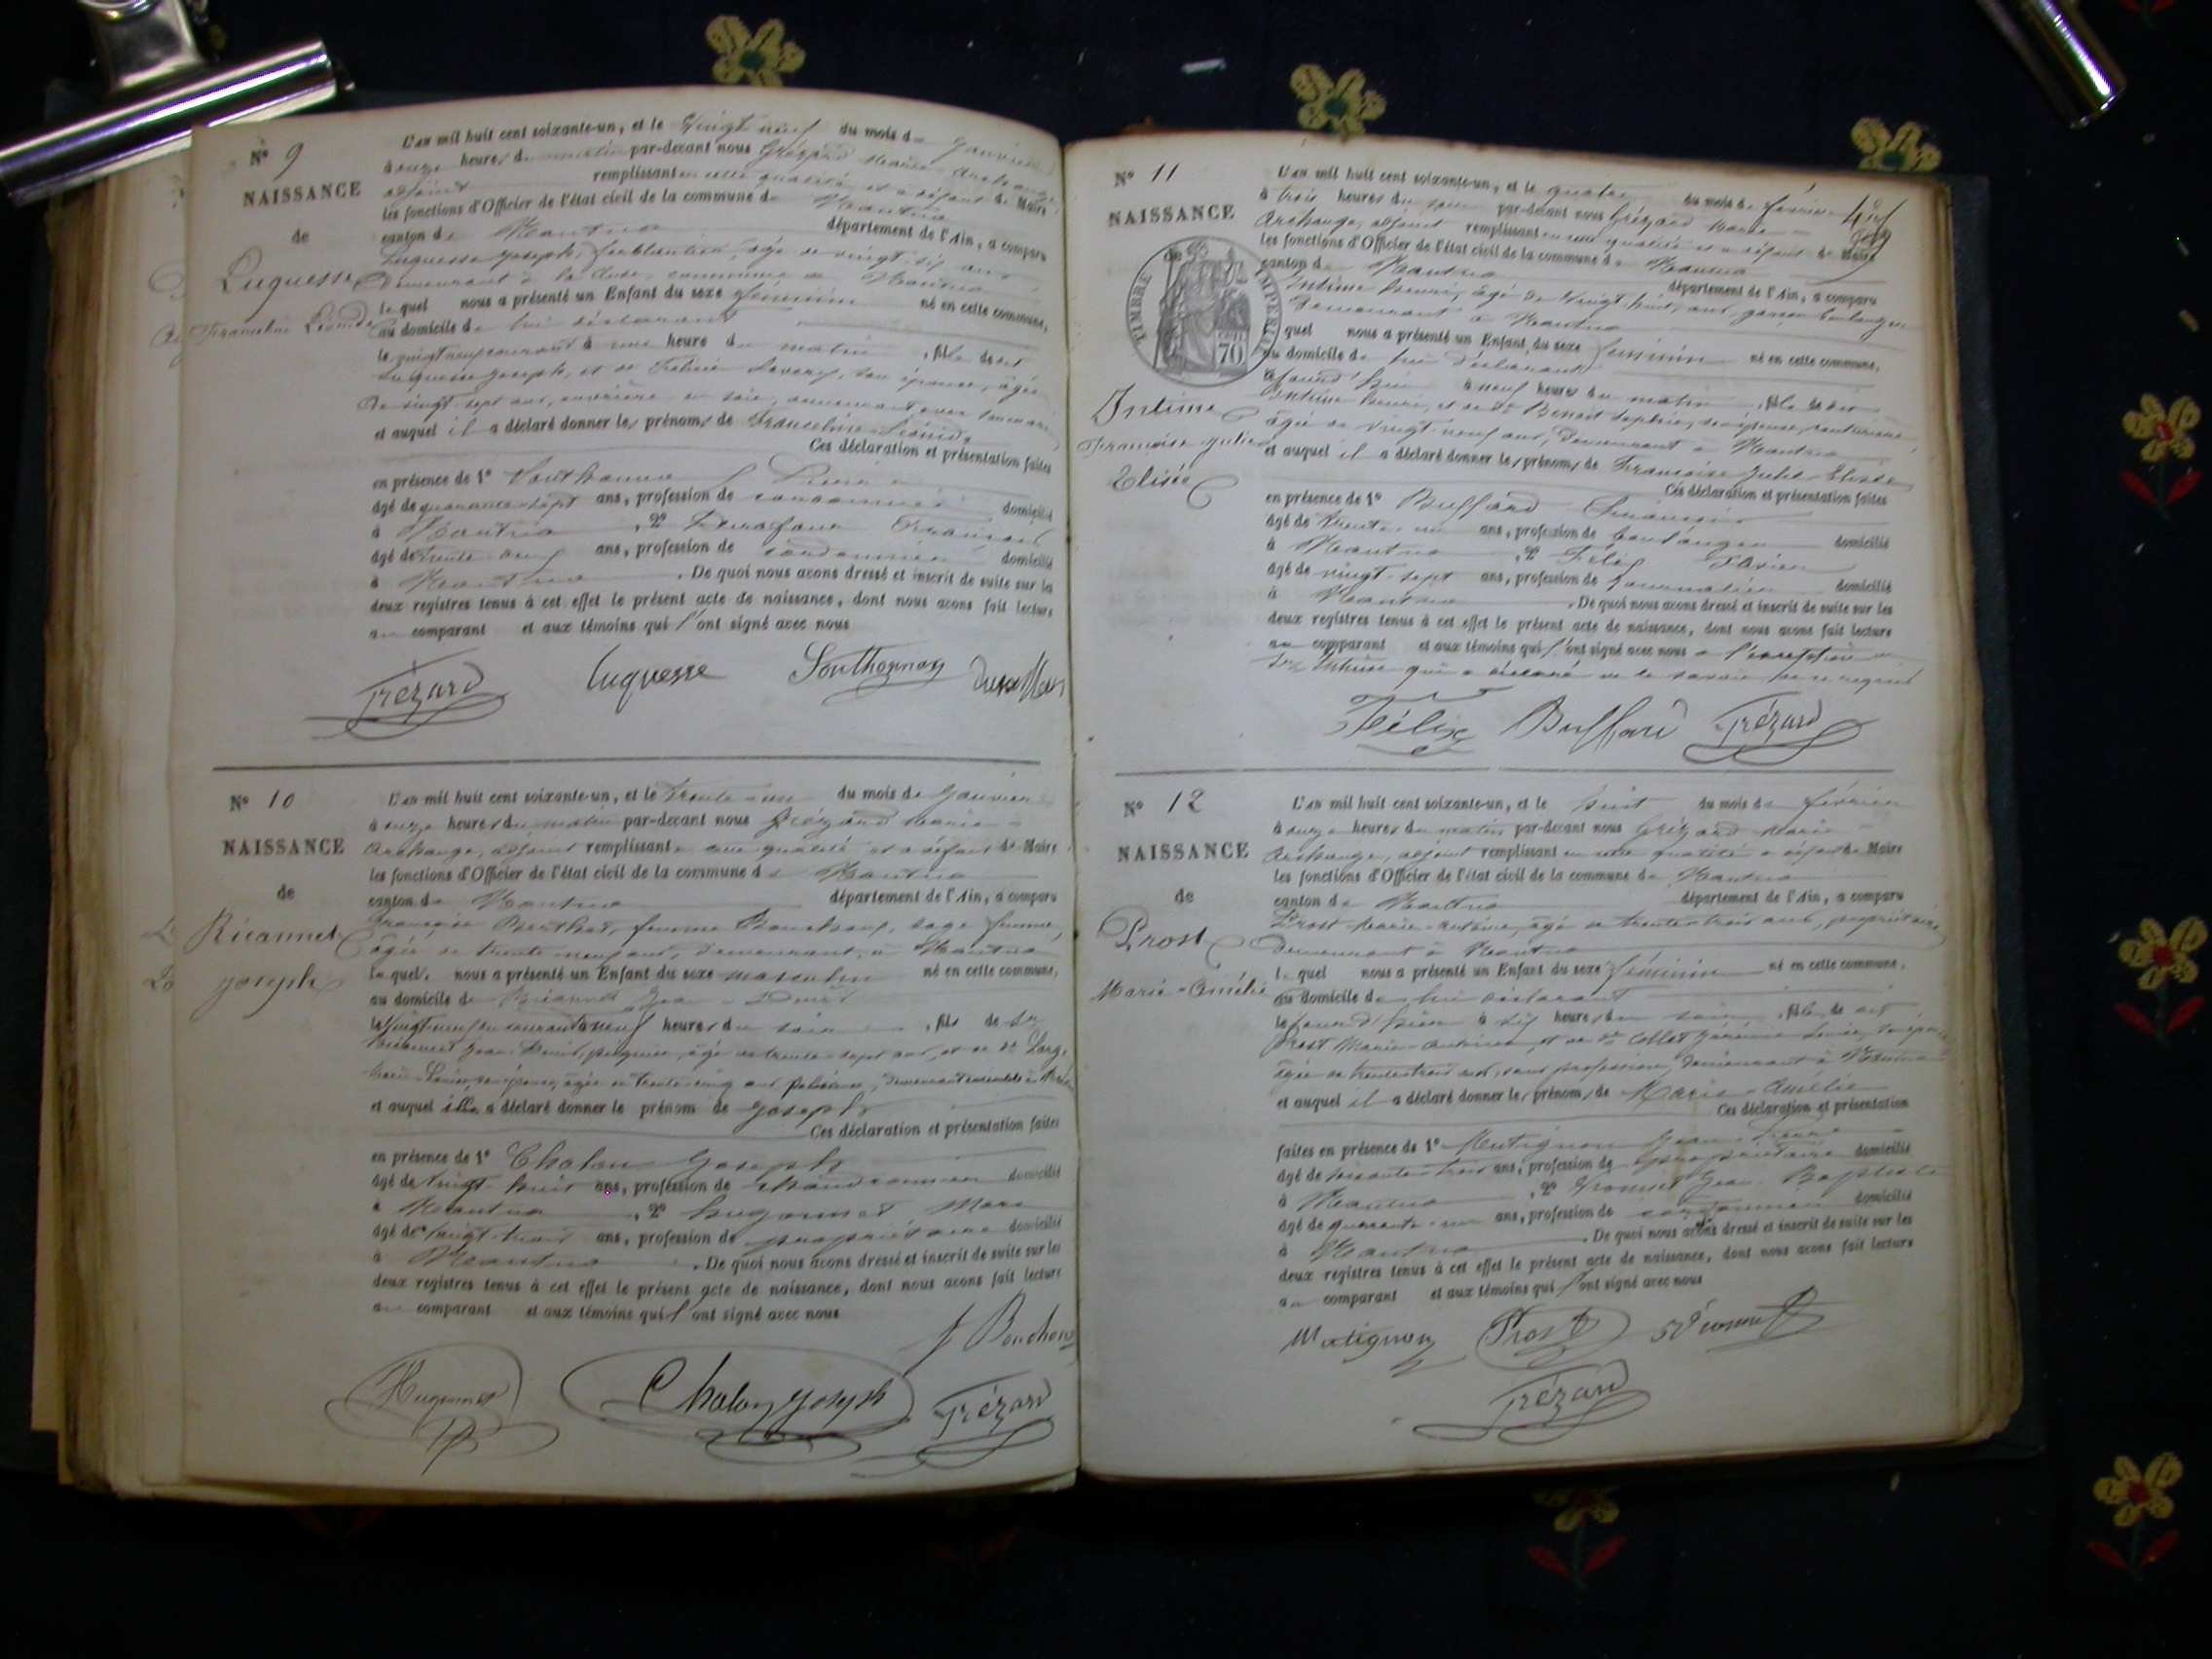 N° 9
NAISSANCE
de
Luquesse
L'an mil huit cent soixante-un, et le Vingt neuf du mois de Janvier
à onze heures du matin par-devant nous Grézard Marie Archange
adjoint remplissant en cette qualité et à défaut de Maire
les fonctions d'Officier de l'état civil de la commune de Nantua
canton de Nantua département de l'Ain, a comparu
Luquesse Joseph, ferblantier, âgé de vingt six ans
demeurant à la Cluse, commune de Nantua
lequel nous a présenté un Enfant du sexe féminin né en cette commune,
au domicile de lui déclarant
le vingt neuf courant à une heure du matin, fille de dit
Luquesse Joseph, et de son épouse, âgée
de vingt sept ans, ouvrière en soie, demeurant avec son mari
et auquel il a déclaré donner les prénoms de
Ces déclaration et présentation faites
en présence de 1°
âgé de quarante sept ans, profession de domicilié
à Nantua, 2°
âgé de trente neuf ans, profession de cordonnier domicilié
à Nantua. De quoi nous avons dressé et inscrit de suite sur les
deux registres tenus à cet effet le présent acte de naissance, dont nous avons fait lecture
au comparant et aux témoins qui l'ont signé avec nous
Grézard Luquesse Southonnax
N° 10
NAISSANCE
de
Ricannet
Joseph
L'an mil huit cent soixante-un, et le trente-un du mois de Janvier
à onze heures du matin par-devant nous Grézard Marie-
Archange, adjoint remplissant en cette qualité et à défaut de Maire
les fonctions d'Officier de l'état civil de la commune de Nantua
canton de Nantua département de l'Ain, a comparu
Françoise Berthet, femme sage femme,
âgée de trente neuf ans, demeurant à Nantua
laquelle nous a présenté un Enfant du sexe masculin né en cette commune,
au domicile de Ricannet Jean-Denis
le vingt neuf du courant à neuf heures du soir, fils de Sr
Ricannet Jean-Denis, peignier, âgé de trente sept ans, et de De
âgée de trente cinq ans, demeurant ensemble à Nantua
et auquel elle a déclaré donner le prénom de Joseph
Ces déclaration et présentation faites
en présence de 1° Chalon Joseph
âgé de vingt huit ans, profession de chaudronnier domicilié
à Nantua, 2° Hugonnet Marc
âgé de vingt trois ans, profession de propriétaire domicilié
à Nantua. De quoi nous avons dressé et inscrit de suite sur les
deux registres tenus à cet effet le présent acte de naissance, dont nous avons fait lecture
au comparant et aux témoins qui l'ont signé avec nous
Hugonnet Chalon Joseph Grézard
N° 11
NAISSANCE
de
TIMBRE IMPERIAL
70
Intime
Françoise Julie
Elisée
L'an mil huit cent soixante-un, et le quatre du mois de février
à trois heures du soir par-devant nous Grézard Marie-
Archange, adjoint remplissant en cette qualité et à défaut de Maire
les fonctions d'Officier de l'état civil de la commune de Nantua
canton de Nantua département de l'Ain, a comparu
Intime Henri, âgé de vingt huit ans, garçon boulanger
demeurant à Nantua
lequel nous a présenté un Enfant du sexe féminin né en cette commune,
au domicile de lui déclarant
le jourd'hui à neuf heures du matin, fille de dit
Intime Henri, et de De Benoit Sophie, son épouse,
âgée de vingt neuf ans, demeurant à Nantua
et auquel il a déclaré donner les prénoms de Françoise Julie Elisée
Ces déclaration et présentation faites
en présence de 1° Buffard François
âgé de trente un ans, profession de boulanger domicilié
à Nantua, 2° Félix
âgé de vingt-sept ans, profession de journalier domicilié
à Nantua. De quoi nous avons dressé et inscrit de suite sur les
deux registres tenus à cet effet le présent acte de naissance, dont nous avons fait lecture
au comparant et aux témoins qui l'ont signé avec nous à l'exception de
Sr Intime qui a déclaré ne le savoir de ce requis
Félix Buffard Grézard
N° 12
NAISSANCE
de
Prost
Marie-Amélie
L'an mil huit cent soixante-un, et le huit du mois de février
à onze heures du matin par-devant nous Grézard Marie-
Archange, adjoint remplissant en cette qualité à défaut de Maire
les fonctions d'Officier de l'état civil de la commune de Nantua
canton de Nantua département de l'Ain, a comparu
Prost Marie-Antoine, âgé de trente trois ans, propriétaire
demeurant à Nantua
lequel nous a présenté un Enfant du sexe féminin né en cette commune,
au domicile de lui déclarant
le jour d'hier à six heures du soir, fille de dit
Prost Marie-Antoine et de De Collet son épouse
âgée de trente trois ans, sans profession, demeurant à Nantua
et auquel il a déclaré donner les prénoms de Marie-Amélie
Ces déclaration et présentation
faites en présence de 1° Mutignon Jean
âgé de soixante trois ans, profession de propriétaire domicilié
à Nantua, 2° Jean-Baptiste
âgé de quarante-un ans, profession de cordonnier domicilié
à Nantua. De quoi nous avons dressé et inscrit de suite sur les
deux registres tenus à cet effet le présent acte de naissance, dont nous avons fait lecture
au comparant et aux témoins qui l'ont signé avec nous
Mutignon Prost
Grézard